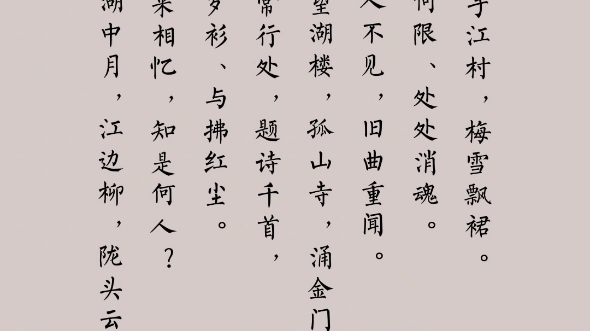 手江村，梅雪飘裙。
何限、处处消魂。
人不见，旧曲重闻。
望湖楼，孤山寺，涌金门
常行处，题诗千首，
罗衫、与拂红尘。
来相忆，知是何人？
湖中月，江边柳，陇头云